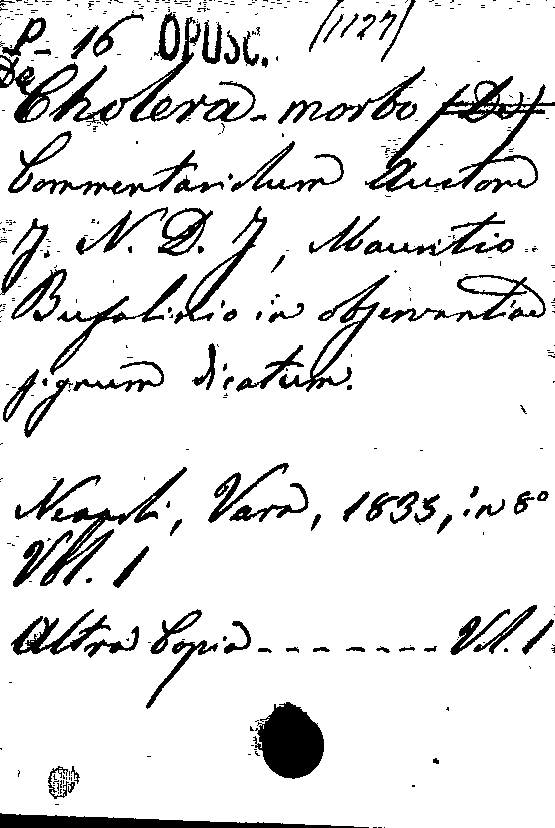 P- 16 OPUSC. (1127)
De
Cholera-morbo (De)
Commentariolum Auctore
J. N. D. J, Mauritio
Bufalinio in observantiae
signum dicatum.
Neapoli, Vara, 1835, in 8°
Vol. 1
Altra Copia - - - - - - - Vol. 1